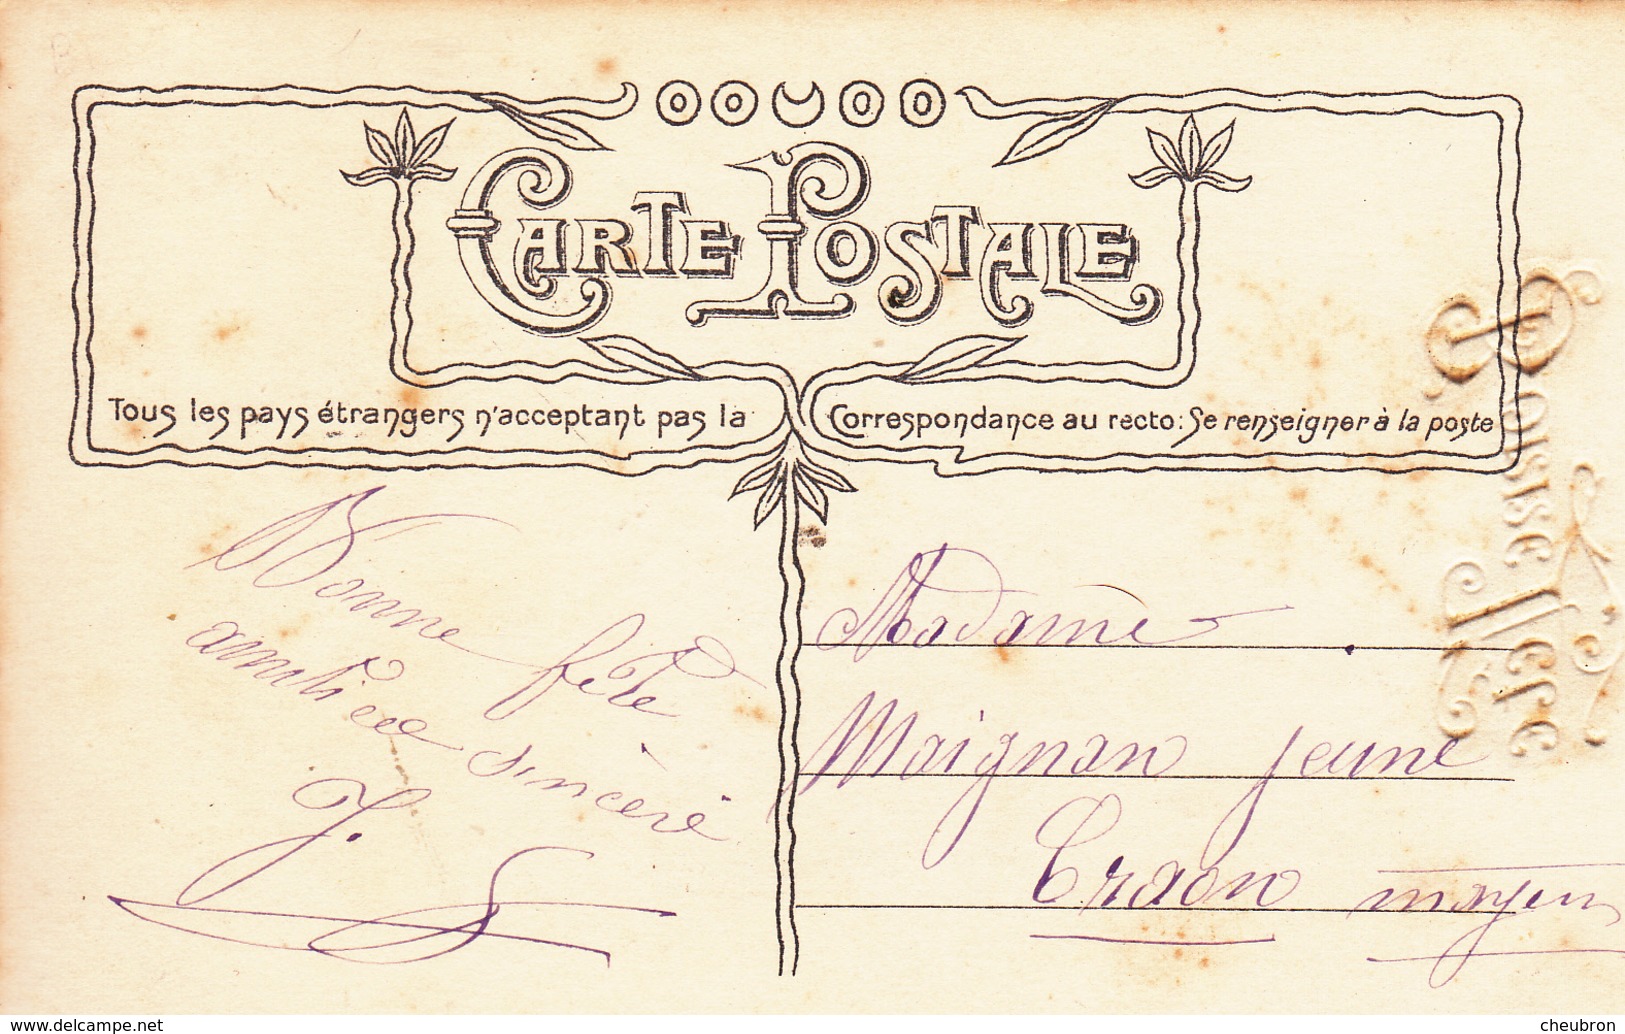 CARTE POSTALE
Tous les pays étrangers n'acceptant pas la Correspondance au recto: Se renseigner à la poste
Bonne fête
amitiée sincère
J. S
Madame
Maignan jeune
Craon mayenn
Bonne Fête
www.delcampe.net
cheubron